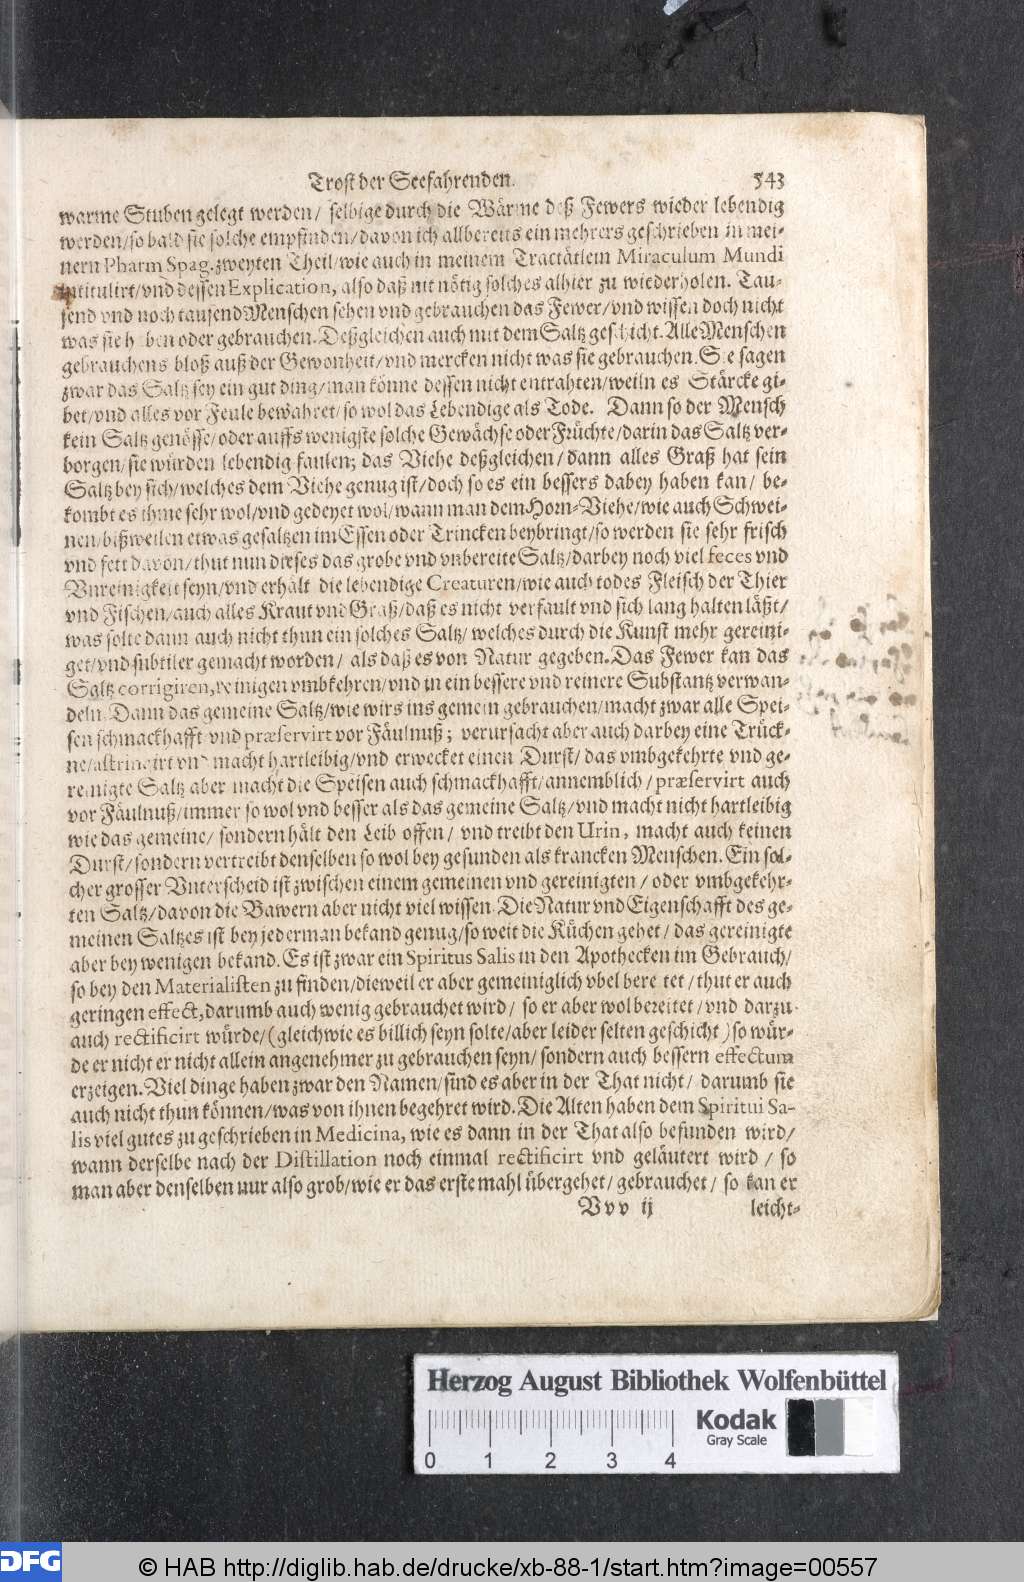 Trost der Seefahrenden. 543
warme Stuben gelegt werden/ selbige durch die Wärme deß Fewers wieder lebendig
werden/so bald sie solche empfinden/davon ich allbereits ein mehrers geschrieben in mei-
nem Pharm Spag. zweyten Theil/wie auch in meinem Tractätlein Miraculum Mundi
intitulirt/vnd dessen Explication, also daß nit nötig solches alhier zu wiederholen. Tau-
send vnd noch tausend Menschen sehen vnd gebrauchen das Fewer/vnd wissen doch nicht
was sie haben oder gebrauchen. Deßgleichen auch mit dem Saltz geschicht. Alle Menschen
gebrauchens bloß auß der Gewonheit/vnd mercken nicht was sie gebrauchen. Sie sagen
zwar das Saltz sey ein gut ding/man könne dessen nicht entrahten/weiln es Stärcke gi-
bet/vnd alles vor Feule bewahret/so wol das Lebendige als Tode. Dann so der Mensch
kein Saltz genösse/oder auffs wenigste solche Gewächse oder Früchte/darin das Saltz ver-
borgen/sie würden lebendig faulen; das Viehe deßgleichen/dann alles Graß hat sein
Saltz bey sich/welches dem Viehe genug ist/doch so es ein bessers dabey haben kan/ be-
kombt es ihme sehr wol/vnd gedeyet wol/wann man dem Horn-Viehe/wie auch Schwei-
nen/bißweilen etwas gesaltzen im Essen oder Trincken beybringt/so werden sie sehr frisch
vnd fett davon/thut nun dieses das grobe vnd vnbereite Saltz/darbey noch viel feces vnd
Vnreinigkeit seyn/vnd erhält die lebendige Creaturen/wie auch todes Fleisch der Thier
vnd Fischen/auch alles Kraut vnd Graß/daß es nicht verfault vnd sich lang halten läßt/
was solte dann auch nicht thun ein solches Saltz/ welches durch die Kunst mehr gereini-
get/vnd subtiler gemacht worden/ als daß es von Natur gegeben. Das Fewer kan das
Saltz corrigiren, reinigen vmbkehren/vnd in ein bessere vnd reinere Substantz verwan-
deln. Dann das gemeine Saltz/wie wirs ins gemein gebrauchen/macht zwar alle Spei-
sen schmackhafft vnd præservirt vor Fäulnuß; verursacht aber auch darbey eine Trück-
ne/astringirt vnd macht hartleibig/vnd erwecket einen Durst/ das vmbgekehrte vnd ge-
reinigte Saltz aber macht die Speisen auch schmackhafft/annemblich/præservirt auch
vor Fäulnuß/immer so wol vnd besser als das gemeine Saltz/vnd macht nicht hartleibig
wie das gemeine/ sondern hält den Leib offen/ vnd treibt den Urin, macht auch keinen
Durst/sondern vertreibt denselben so wol bey gesunden als krancken Menschen. Ein sol-
cher grosser Vnterscheid ist zwischen einem gemeinen vnd gereinigten/ oder vmbgekehr-
ten Saltz/davon die Bawern aber nicht viel wissen. Die Natur vnd Eigenschafft des ge-
meinen Saltzes ist bey jederman bekand genug/so weit die Küchen gehet/ das gereinigte
aber bey wenigen bekand. Es ist zwar ein Spiritus Salis in den Apothecken im Gebrauch/
so bey den Materialisten zu finden/dieweil er aber gemeiniglich vbel bereitet/thut er auch
geringen effect, darumb auch wenig gebrauchet wird/ so er aber wol bereitet/vnd darzu
auch rectificirt würde/(gleich wie es billich seyn solte/aber leider selten geschicht) so wür-
de er nicht er nicht allein angenehmer zu gebrauchen seyn/sondern auch bessern effectum
erzeigen. Viel dinge haben zwar den Namen/sind es aber in der That nicht/ darumb sie
auch nicht thun können/was von ihnen begehret wird. Die Alten haben dem Spiritui Sa-
lis viel gutes zu geschrieben in Medicina, wie es dann in der That also befunden wird/
wann derselbe nach der Distillation noch einmal rectificirt vnd geläutert wird / so
man aber denselben nur also grob/wie er das erste mahl übergehet/gebrauchet/ so kan er
Vvv ij leicht-
Herzog August Bibliothek Wolfenbüttel
Kodak
Gray Scale
0 1 2 3 4
DFG © HAB http://diglib.hab.de/drucke/xb-88-1/start.htm?image=00557